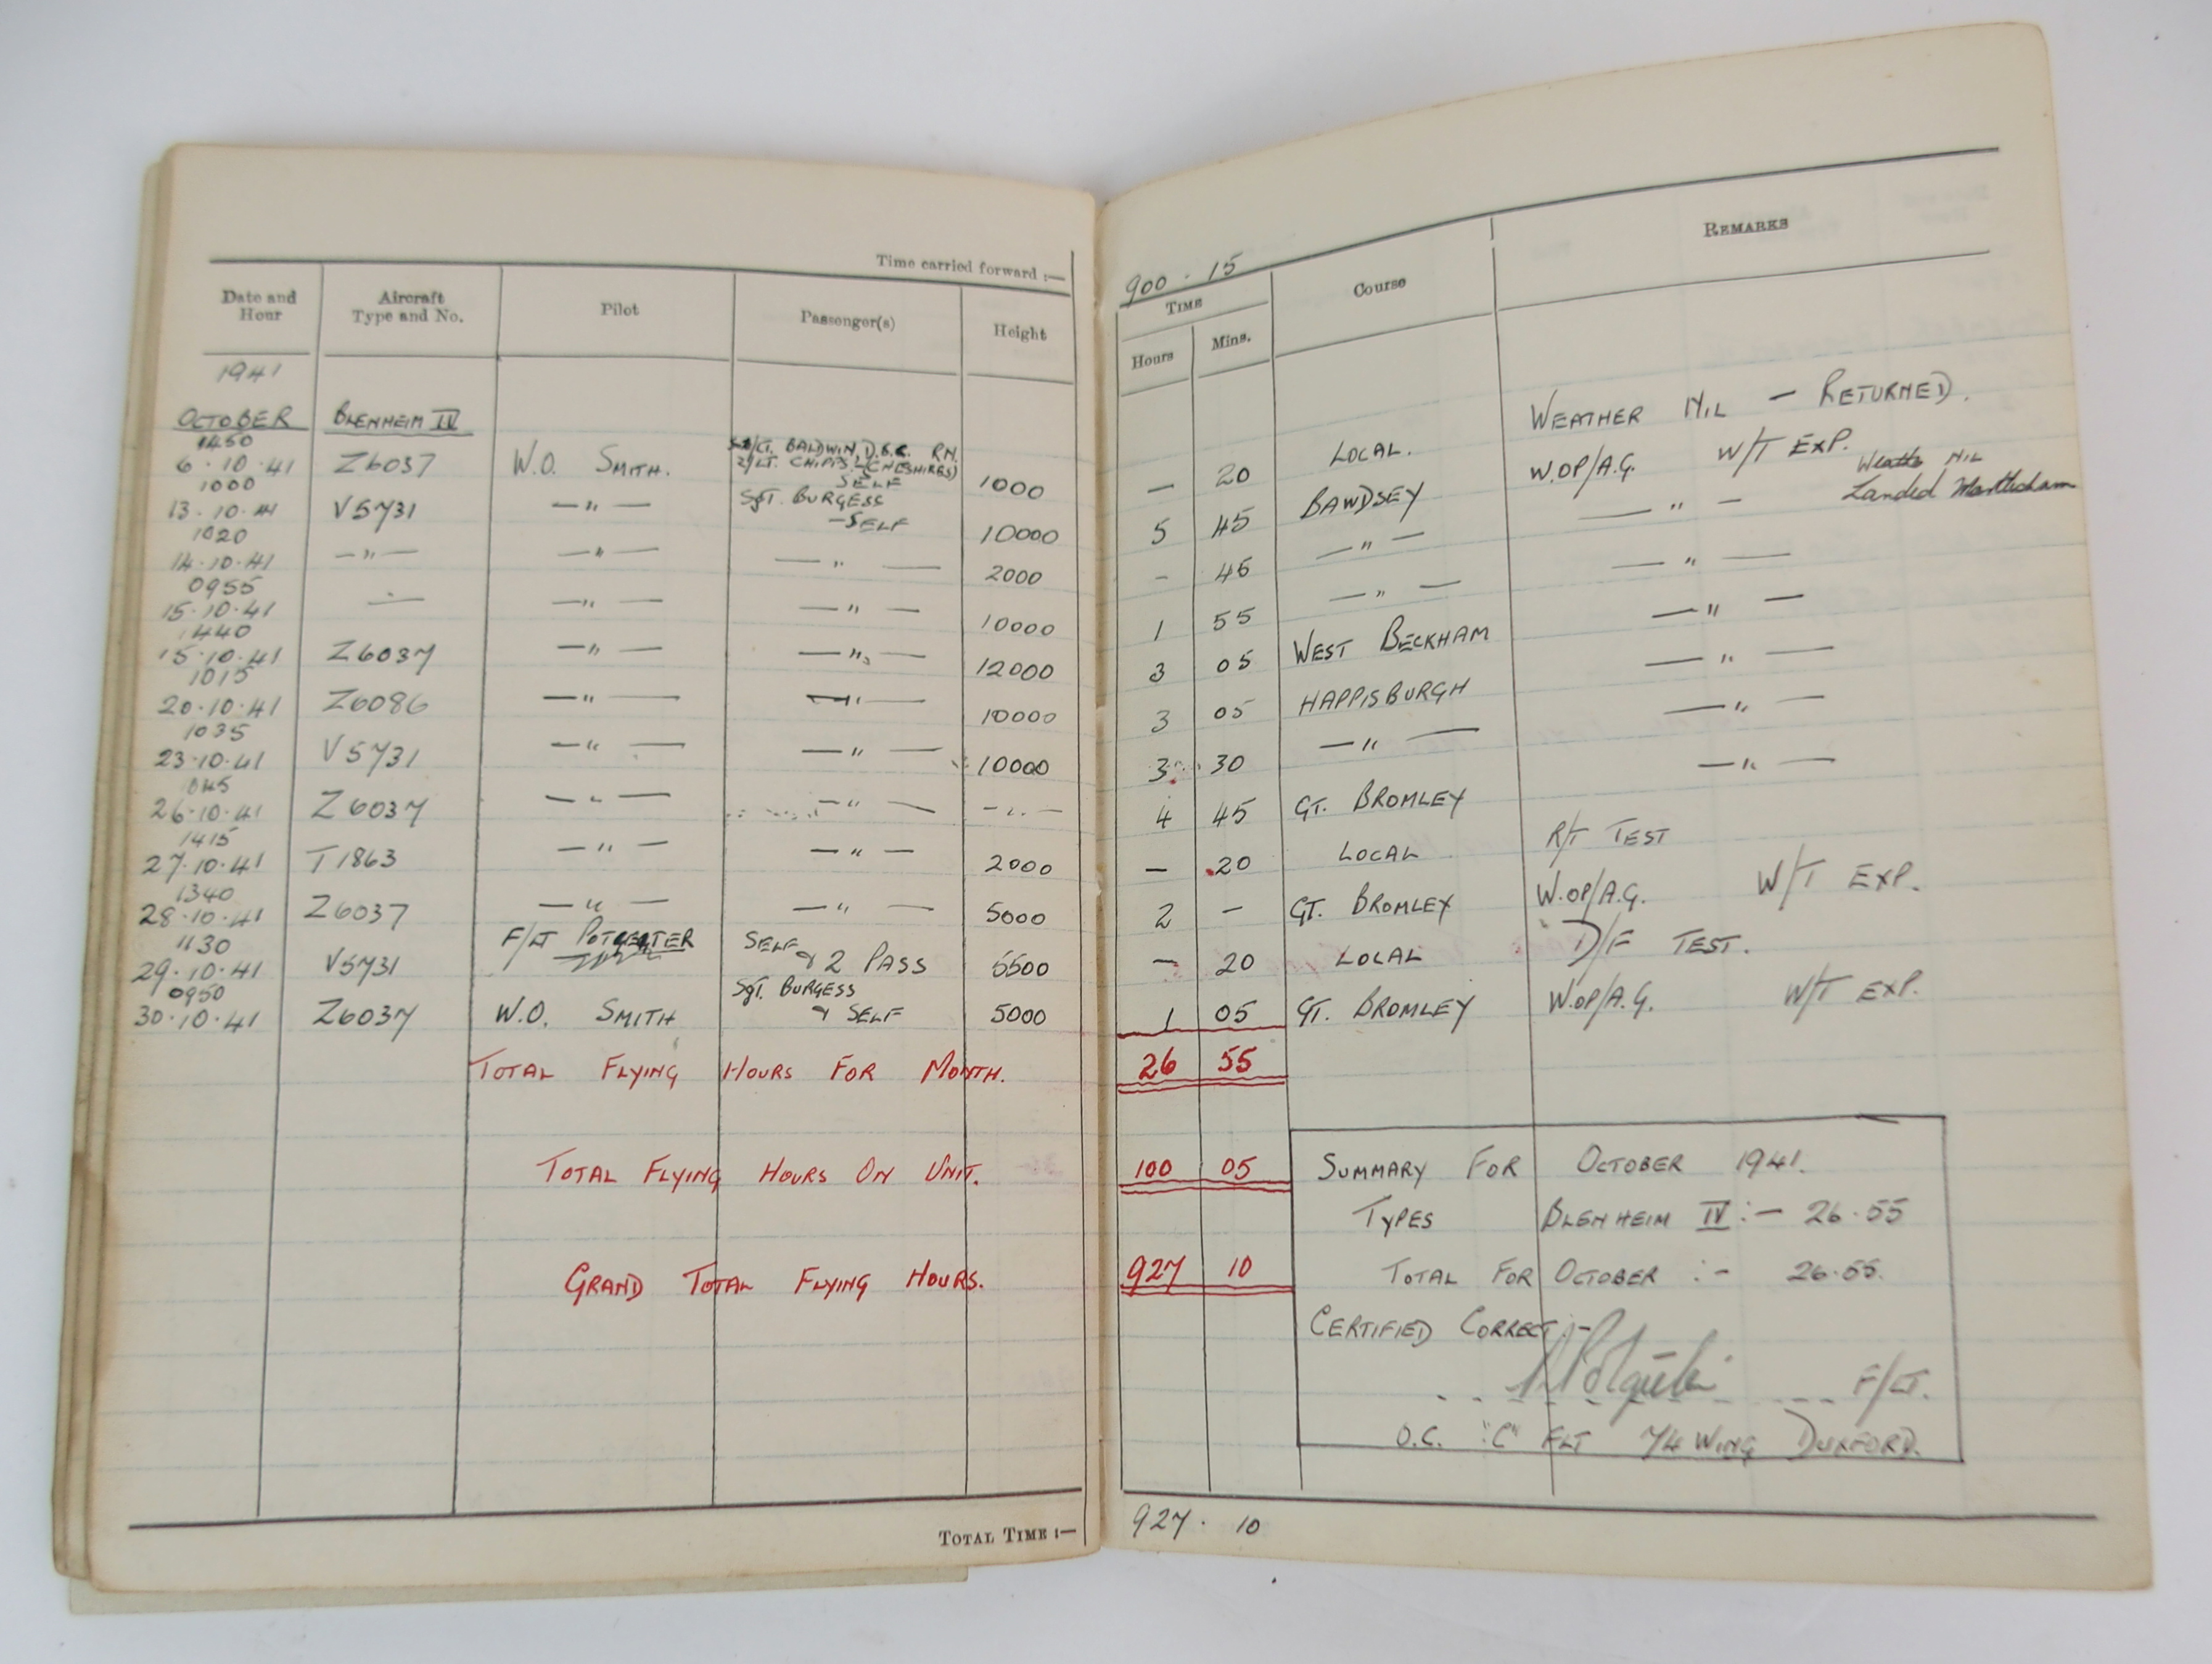 Time carried forward :—
900 . 15
Date and Hour | Aircraft Type and No. | Pilot | Passenger(s) | Height | TIME Hours Mins. | Course | REMARKS
1941
OCTOBER BLENHEIM IV
1450 BALDWIN, D.S.C. R.N. WEATHER NIL — RETURNED.
6.10.41 Z6037 W.O. SMITH. 2/LT. CHIPPS (CHESHIRES) SELF 1000 — 20 LOCAL.
1000 SGT. BURGESS
13.10.41 V5731 —"— — SELF 10000 5 45 BAWDSEY W.OP/A.G. W/T EXP.
1020 Weather NIL
14.10.41 —"— —"— —"— 2000 - 45 —"— —"— Landed Martlesham
0955
15.10.41 — —"— —"— 10000 1 55 —"— —"—
1440
15.10.41 Z6037 —"— —"— 12000 3 05 WEST BECKHAM —"—
1015
20.10.41 Z6086 —"— —"— 10000 3 05 HAPPISBURGH —"—
1035
23.10.41 V5731 —"— —"— 10000 3 30 —"— —"—
1045
26.10.41 Z6037 —"— —"— —"— 4 45 GT. BROMLEY —"—
1415
27.10.41 T1863 —"— —"— 2000 — 20 LOCAL R/T TEST
1340
28.10.41 Z6037 —"— —"— 5000 2 — GT. BROMLEY W.OP/A.G. W/T EXP.
1130
29.10.41 V5731 F/LT POTGEITER SELF & 2 PASS 5500 — 20 LOCAL D/F TEST.
0950 SGT. BURGESS
30.10.41 Z6037 W.O. SMITH & SELF 5000 1 05 GT. BROMLEY W.OP/A.G. W/T EXP.
TOTAL FLYING HOURS FOR MONTH. 26 55
TOTAL FLYING HOURS ON UNIT. 100 05
GRAND TOTAL FLYING HOURS. 927 10
SUMMARY FOR OCTOBER 1941.
TYPES BLENHEIM IV :— 26.55
TOTAL FOR OCTOBER :— 26.55.
CERTIFIED CORRECT :—
F/LT.
O.C. "C" FLT 74 WING DUXFORD.
TOTAL TIME :— 927. 10